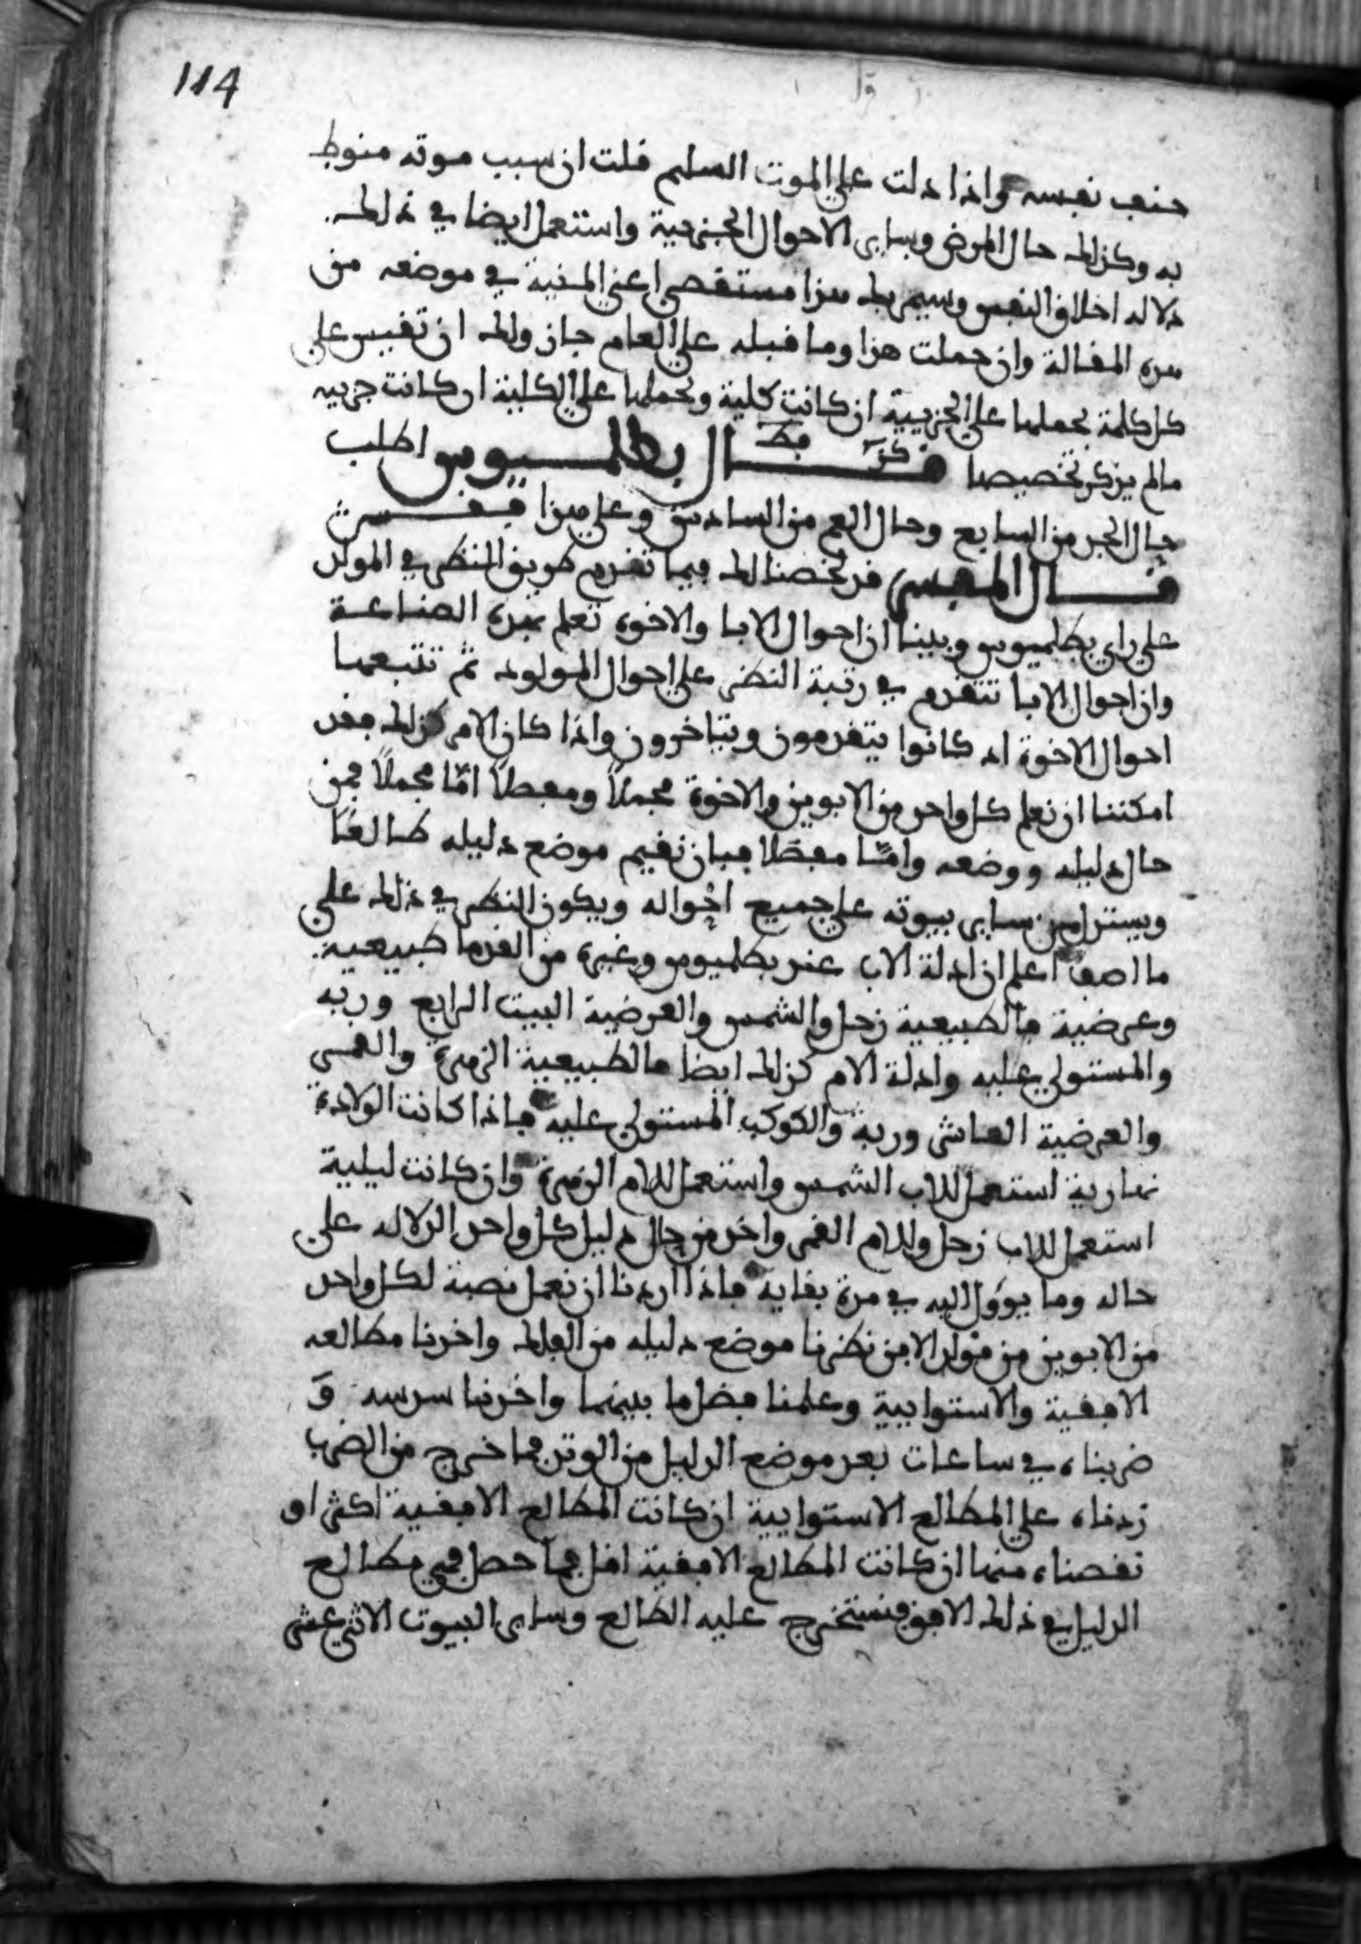 114
حتف نفسه واذا دلت على الموت السليم قلت ان سبب موته منوط
به وكذلك حال المرض وساير الاحوال الجزءية واستعمل ايضا في ذلك
دلاله اخلاق النفس وسيمر بك هذا مستقصى اعني المنية في موضعه من
هذه المقالة وان حملت هذا وما قبله على العام جاز ولك ان تقيس على
كل كلمة بحملها على الجزيية ان كانت كلية وبحملها على الكلية ان كانت جزييه
مالم يذكر تخصيصا قال بطلميوس اطلب
حال الجد من السابع وحال العم من السادس وعلى هذا فقس
قال المفسر قد لخصنا لك فيما تقدم طريق النظر في المولد
على راي بطلميوس وبينا ان احوال الابا والاخوه تعلم بهذه الصناعة
وان احوال الابا تتقدم في رتبة النظر على احوال المولود ثم تتبعها
احوال الاخوة اذ كانوا يتقدمون ويتاخرون واذا كان الامر كذلك فقد
امكننا ان نعلم كل واحد من الابوين والاخوة مجملا ومفصلا امّا مجملا فمن
حال دليله ووضعه وامّا مفصلا فبان نقيم موضع دليله طالعا
ويستدل من ساير بيوته على جميع احواله ويكون النظر في ذلك على
ما اصف اعلم ان ادلة الاب عند بطلميوس وغيره من القدما طبيعية
وعرضية فالطبيعية زحل والشمس والعرضية البيت الرابع وربه
والمستولي عليه وادلة الام كذلك ايضا فالطبيعية الزهرة والقمر
والعرضية العاشر وربه والكوكب المستولي عليه فاذا كانت الولادة
نهارية استعمل للاب الشمس واستعمل للام الزهرة وان كانت ليلية
استعمل للاب زحل وللام القمر واخذ من حال دليل كل واحد الدلاله على
حاله وما يوول اليه في مدة بقايه فاذا اردنا ان نعمل نصبة لكل واحد
من الابوين من مولد الابن نظرنا موضع دليله من الفلك واخذنا مطالعه
الافقية والاستوايية وعلمنا فضل ما بينهما واخذنا سدسه وَ
ضربناه في ساعات بعد موضع الدليل من الوتد فما خرج من الضرب
زدناه على المطالع الاستوايية ان كانت المطالع الافقية اكثر او
نقصناه منها ان كانت المطالع الافقية اقل فما حصل فهي مطالع
الدليل في ذلك الافق فنستخرج عليه الطالع وساير البيوت الاثني عشر